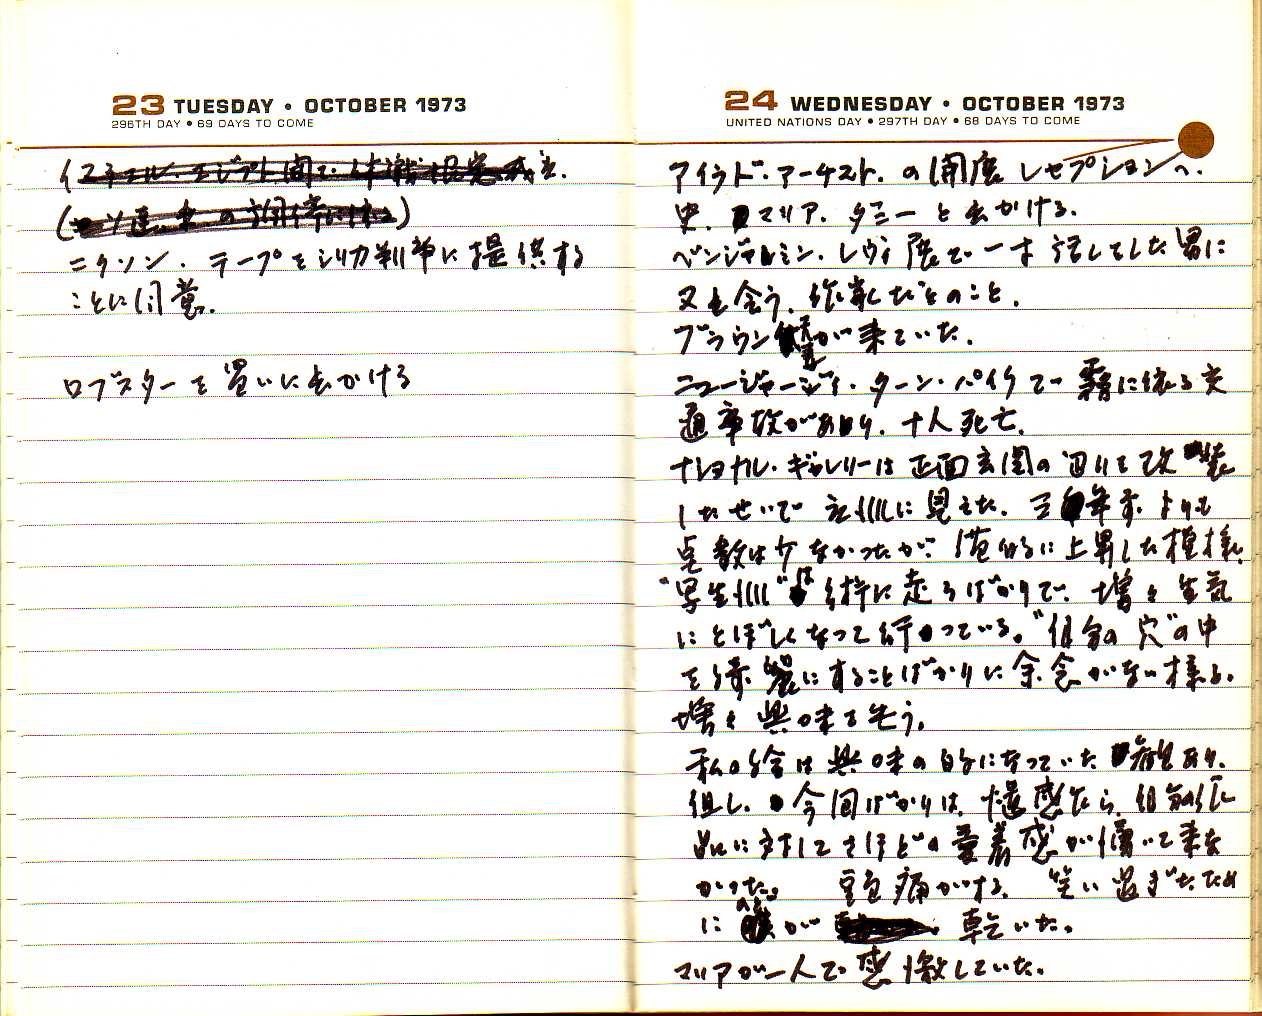 23 TUESDAY • OCTOBER 1973
296TH DAY • 69 DAYS TO COME
イスラエル・エジプト間で、休戦協定成立.
ニクソン. テープをシリカ判事に提供する
ことに同意.
ロブスターを買いに出かける
24 WEDNESDAY • OCTOBER 1973
UNITED NATIONS DAY • 297TH DAY • 68 DAYS TO COME
アイランド・アーケスト. の開廊レセプションへ.
史. マリア. タミーと出かける.
ベンジャミン. レヴィ展で一寸話しをした男に
又も会う. 作家だとのこと.
ブラウン夫妻が来ていた.
ニュージャージィ・ターン・パイクで霧に依る交
通事故があり. 十人死亡.
ナショナル・ギャレリーは正面玄関の辺りを改装
したせいで立派に見えた. 三年前よりも
点数は少なかったが、値的に上昇した模様.
に走るばかりで、増々生気
にとぼしくなって行っている。"自分の穴"の中
を綺麗にすることばかりに余念がない様子.
増々興味を失う.
私の絵は興味の的になっていた
但し. 今回ばかりは、
に対してさほどの愛着感が湧いて来な
かった. 頭痛がする. 笑い過ぎたため
にのどが 乾いた.
マリアが一人で感激していた.